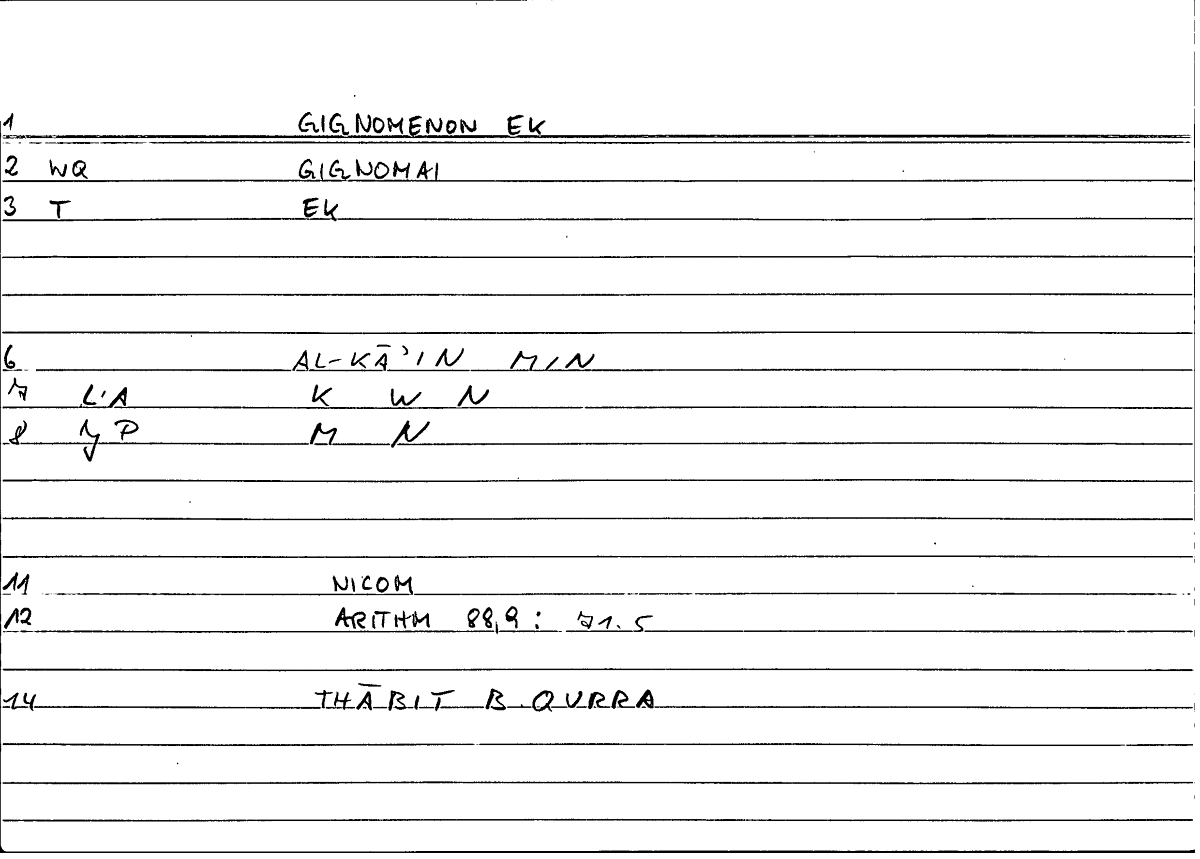 1 GIGNOMENON EK
2 WQ GIGNOMAI
3 T EK
6 AL-KĀʾIN MIN
7 L'A K W N
8 YP M N
11 NICOM
12 ARITHM 88,9: 71.5
14 THĀBIT B. QURRA